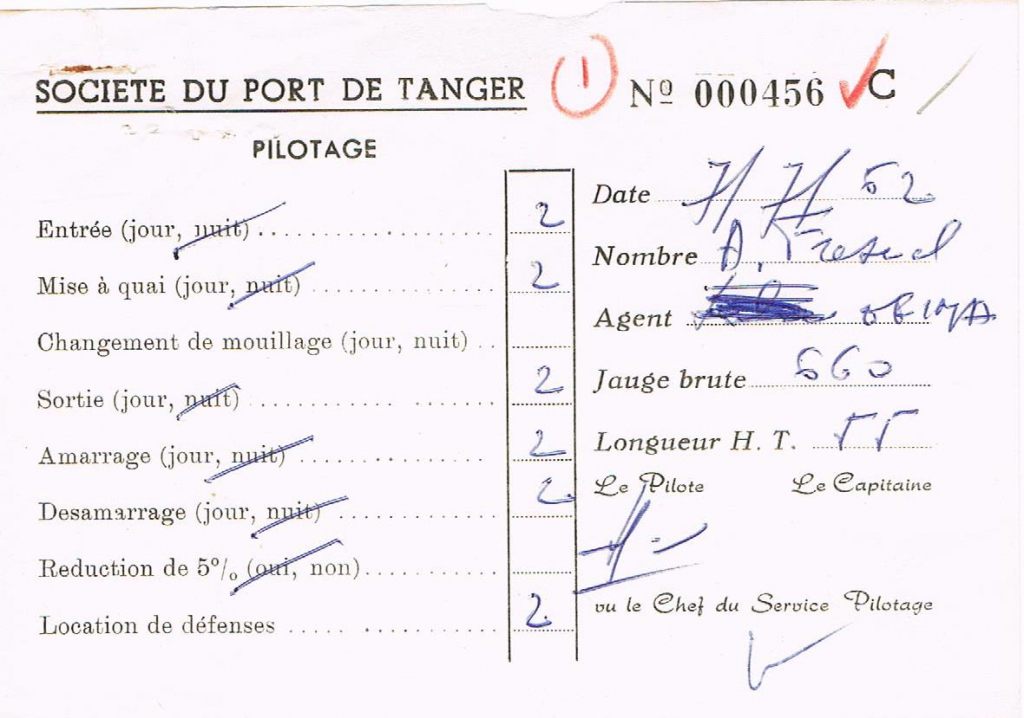 SOCIETE DU PORT DE TANGER
1
Nº 000456 C
PILOTAGE
Entrée (jour, nuit) 2
Mise à quai (jour, nuit) 2
Changement de mouillage (jour, nuit)
Sortie (jour, nuit) 2
Amarrage (jour, nuit) 2
Desamarrage (jour, nuit) 2
Reduction de 5% (oui, non)
Location de défenses 2
Date 7/7/52
Nombre A.
Agent
Jauge brute 560
Longueur H. T. 55
Le Pilote Le Capitaine
vu le Chef du Service Pilotage